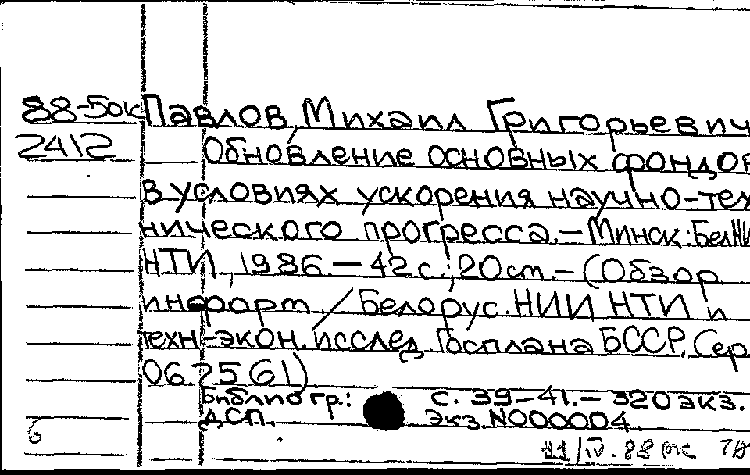 88-5ок Павлов, Михаил Григорьевич
2412 Обновление основных фондов
в условиях ускорения научно-тех
нического прогресса. – Минск: БелНИ
НТИ, 1986. – 42 с.; 20 см. – (Обзор.
информ. / Белорус. НИИ НТИ и
техн.-экон. исслед. Госплана БССР. Сер.
06.75.61)
Библиогр.: с. 39-41. – 320 экз.
ДСП. Экз. N000004.
б 11/IV.88